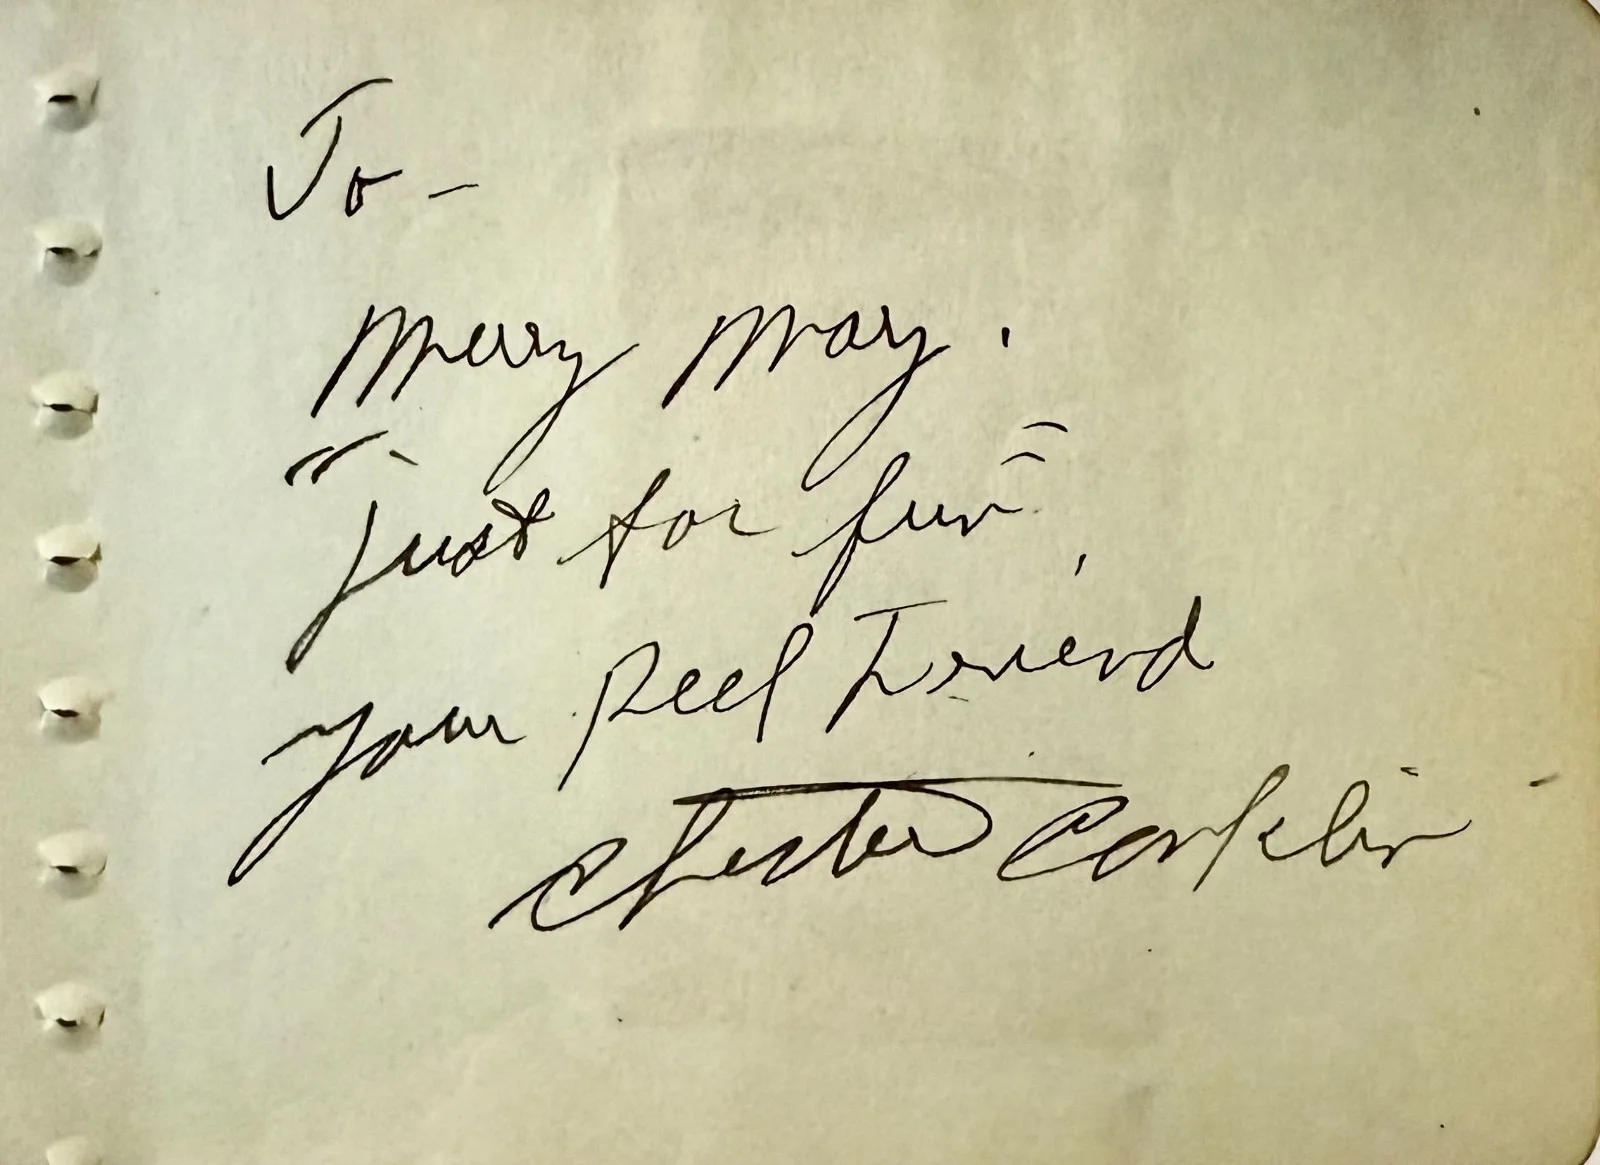 To -
Merry Mary.
"just for fun"
your Reel Friend
Chester Conklin